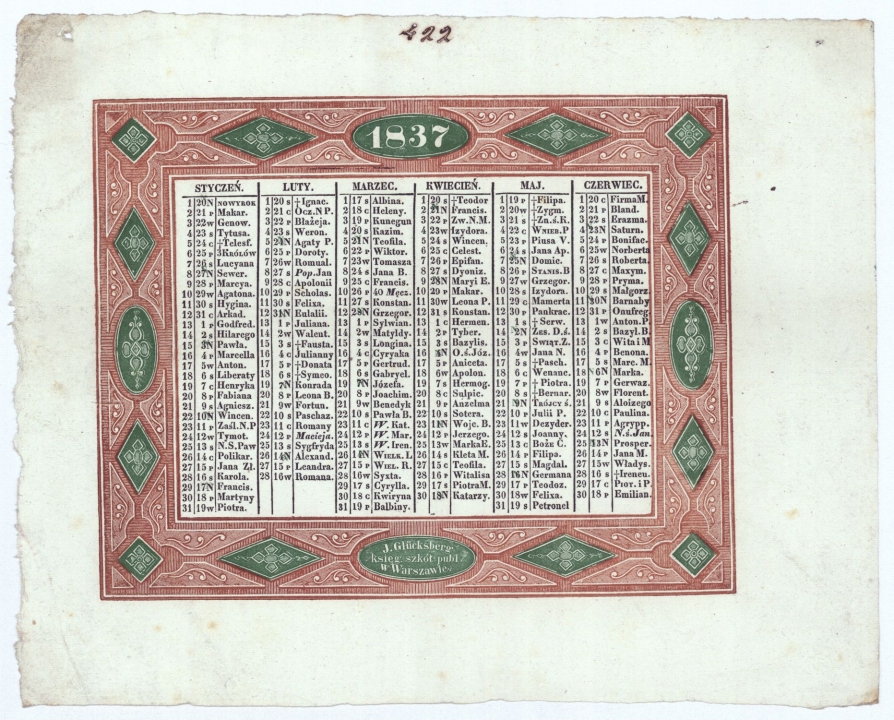 422
1837
STYCZEŃ.
1 20N NOWYROK
2 21 p Makar.
3 22w Genow.
4 23 s Tytusa.
5 24 c †Telesf.
6 25 p 3KRÓLÓW
7 26 s Lucyana
8 27N Sewer.
9 28 p Marcya.
10 29w Agatona.
11 30 s Hygina.
12 31 c Arkad.
13 1 p Godfred.
14 2 s Hilarego
15 3N Pawła.
16 4 p Marcella
17 5w Anton.
18 6 s Liberaty
19 7 c Henryka
20 8 p Fabiana
21 9 s Agniesz.
22 10N Wincen.
23 11 p Zaśl.N.P
24 12w Tymot.
25 13 s N.S.Paw
26 14 c Polikar.
27 15 p Jana Zł.
28 16 s Karola.
29 17N Francis.
30 18 p Martyny
31 19w Piotra.
LUTY.
1 20 s †Ignac.
2 21 c Ocz.N P.
3 22 p Błażeja.
4 23 s Weron.
5 24N Agaty P.
6 25 p Doroty.
7 26w Romual.
8 27 s Pop.Jan
9 28 c Apolonii
10 29 p Scholas.
11 30 s Felixa.
12 31N Eulalii.
13 1 p Juliana.
14 2w Walent.
15 3 s †Fausta.
16 4 c Julianny
17 5 p †Donata
18 6 s †Symeo.
19 7N Konrada
20 8 p Leona B.
21 9w Fortun.
22 10 s Paschaz.
23 11 c Romany
24 12 p Macieja.
25 13 s Sygfryda
26 14N Alexand.
27 15 p Leandra.
28 16w Romana.
MARZEC.
1 17 s Albina.
2 18 c Heleny.
3 19 p Kunegun
4 20 s Kazim.
5 21N Teofila.
6 22 p Wiktor.
7 23w Tomasza
8 24 s Jana B.
9 25 c Francis.
10 26 p 40 Męcz.
11 27 s Konstan.
12 28N Grzegor.
13 1 p Sylwian.
14 2w Matyldy.
15 3 s Longina.
16 4 c Cyryaka
17 5 p Gertrud.
18 6 s Gabryel.
19 7N Józefa.
20 8 p Joachim.
21 9w Benedyk
22 10 s Pawła B.
23 11 c W. Kat.
24 12 p W. Mar.
25 13 s W. Iren.
26 14N WIELK. L
27 15 p WIEL. R.
28 16w Syxta.
29 17 s Cyrylla.
30 18 c Kwiryna
31 19 p Balbiny.
KWIECIEŃ.
1 20 s †Teodor
2 21N Francis.
3 22 p Zw.N.M.
4 23w Izydora.
5 24 s Wincen.
6 25 c Celest.
7 26 p Epifan.
8 27 s Dyoniz.
9 28N Maryi E.
10 29 p Makar.
11 30w Leona P.
12 31 s Konstan.
13 1 c Hermen.
14 2 p Tyber.
15 3 s Bazylis.
16 4N O.ś.Józ.
17 5 p Aniceta.
18 6w Apolon.
19 7 s Hermog.
20 8 c Sulpic.
21 9 p Anzelma
22 10 s Sotera.
23 11N Wojc. B.
24 12 p Jerzego.
25 13w MarkaE.
26 14 s Kleta M.
27 15 c Teofila.
28 16 p Witalisa
29 17 s PiotraM.
30 18N Katarzy.
MAJ.
1 19 p †Filipa.
2 20w †Zygm.
3 21 s †Zn.ś.K.
4 22 c WNIEB.P
5 23 p Piusa V.
6 24 s Jana Ap.
7 25N Domic.
8 26 p STANIS.B
9 27w Grzegor.
10 28 s Izydora.
11 29 c Mamerta
12 30 p Pankrac.
13 1 s † Serw.
14 2N ZES. D.ś.
15 3 p ŚWIĄT.Z.
16 4w Jana N.
17 5 s †Pasch.
18 6 c Wenanc.
19 7 p † Piotra.
20 8 s †Bernar.
21 9N TRÓJCY Ś.
22 10 p Julii P.
23 11w Dezyder.
24 12 s Joanny.
25 13 c BOŻE C.
26 14 p Filipa.
27 15 s Magdal.
28 16N Germana
29 17 p Teodoz.
30 18w Felixa.
31 19 s Petronel
CZERWIEC.
1 20 c FirmaM.
2 21 p Bland.
3 22 s Erazma.
4 23N Saturn.
5 24 p Bonifac.
6 25w Norberta
7 26 s Roberta.
8 27 c Maxym.
9 28 p Pryma.
10 29 s Małgorz.
11 30N Barnaby
12 31 p Onufreg.
13 1w Anton.P.
14 2 s Bazyl.B.
15 3 c Wita i M
16 4 p Benona.
17 5 s Marc. M.
18 6N Marka.
19 7 p Gerwaz.
20 8w Florent.
21 9 s Aloizego
22 10 c Paulina.
23 11 p Agrypp.
24 12 s N.ś.Jan.
25 13N Prosper.
26 14 p Jana M.
27 15w Władys.
28 16 s †Ireneu.
29 17 c PIOT. i P.
30 18 p Emilian.
J. Glücksberg
księg: szkół publ:
w Warszawie.